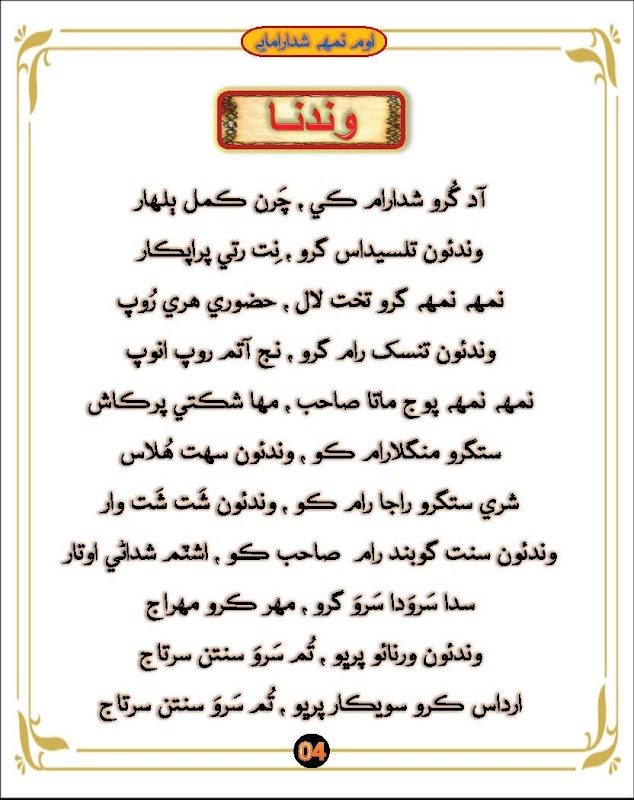 اوم نمهہ شدارامايہ
وندنا
آد گُرو شدارام کي ، چَرن ڪمل ٻلهار
وندئون تلسيداس گرو ، نِت رتي پراپڪار
نمهہ نمهہ گرو تخت لال ، حضوري هري رُوپ
وندئون تنسڪ رام گرو ، نج آتم روپ انوپ
نمهہ نمهہ پوڄ ماتا صاحب ، مها شڪتي پرڪاش
ستگرو منگلارام ڪو ، وندئون سهت هُلاس
شري ستگرو راجا رام ڪو ، وندئون شَت شَت وار
وندئون سنت گوبند رام صاحب ڪو ، اشٽم شداڻي اوتار
سدا سَروَدا سَروَ گرو ، مهر ڪرو مهراج
وندئون ورنائو پرڀو ، تُم سَروَ سنتن سرتاج
ارداس ڪرو سويڪار پرڀو ، تُم سَروَ سنتن سرتاج
04